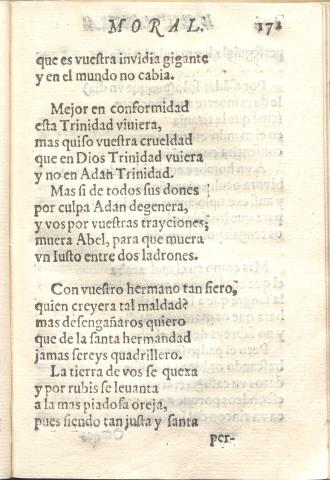 MORAL. 172
que es vuestra inuidia gigante
y en el mundo no cabia.
Mejor en conformidad
esta Trinidad viuiera,
mas quiso vuestra crueldad
que en Dios Trinidad vuiera
y no en Adan Trinidad.
Mas si de todos sus dones
por culpa Adan degenera,
y vos por vuestras trayciones;
muera Abel, para que muera
vn Iusto entre dos ladrones.
Con vuestro hermano tan fiero,
quien creyera tal maldad?
mas desengañaros quiero
que de la santa hermandad
jamas sereys quadrillero.
La tierra de vos se quexa
y por rubis se leuanta
a la mas piadosa oreja,
pues siendo tan justa y santa
per-